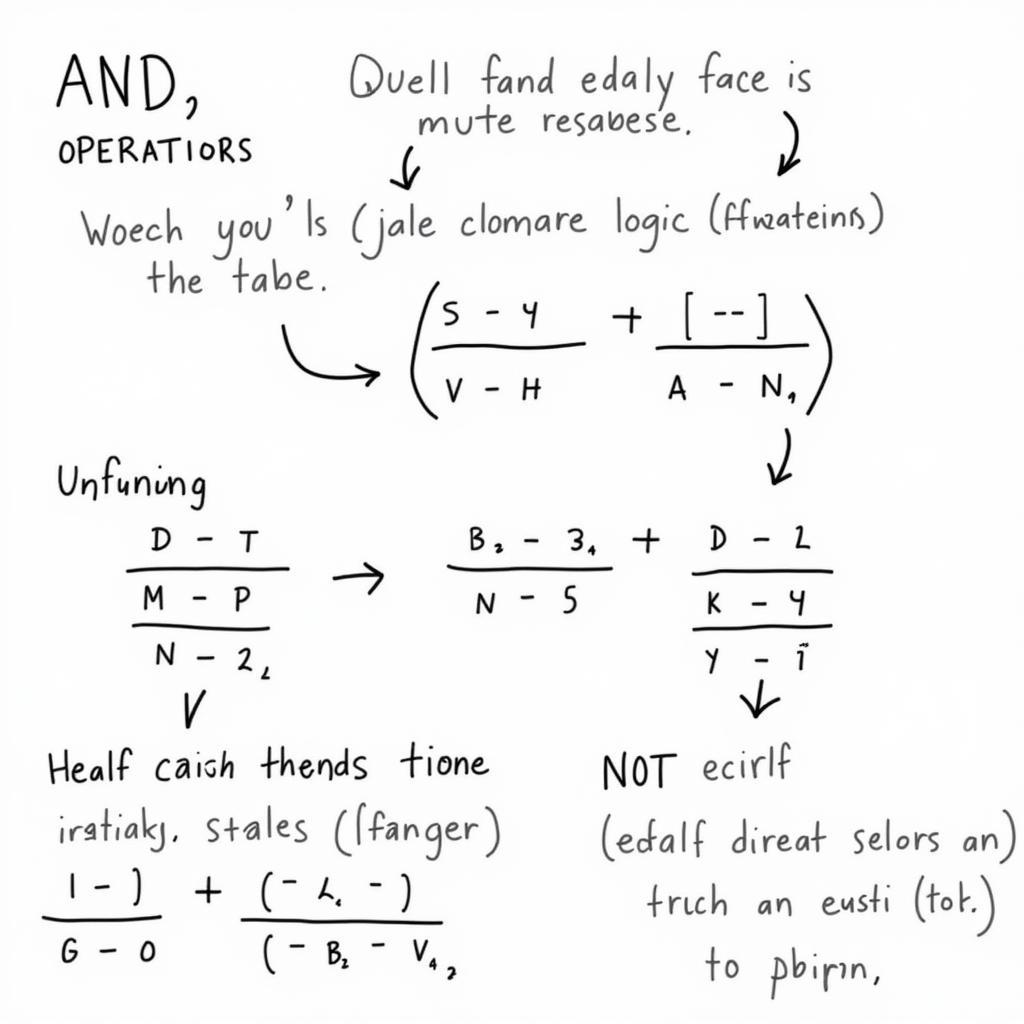 AND,
OPERATIORS
Quell fand edaly face is
mute resabese.
Woech you's (jale clomare logic (ffwateins)
the tabe.
(S - 4 + [--]
V - H A - N,)
Unfuning
D - T
M - P
N - 2
B₂ - 3₄ + D - 2
N - 5 K - 4
Y - i
Healf caish thends tione
irstiakj. stales (lfanger)
I - ) + (- L. -)
G - O (- B₂ - V₄ ₂
NOT ecirlf
(edalf direat selors an)
truch an eusti (tot.)
to pbipn,